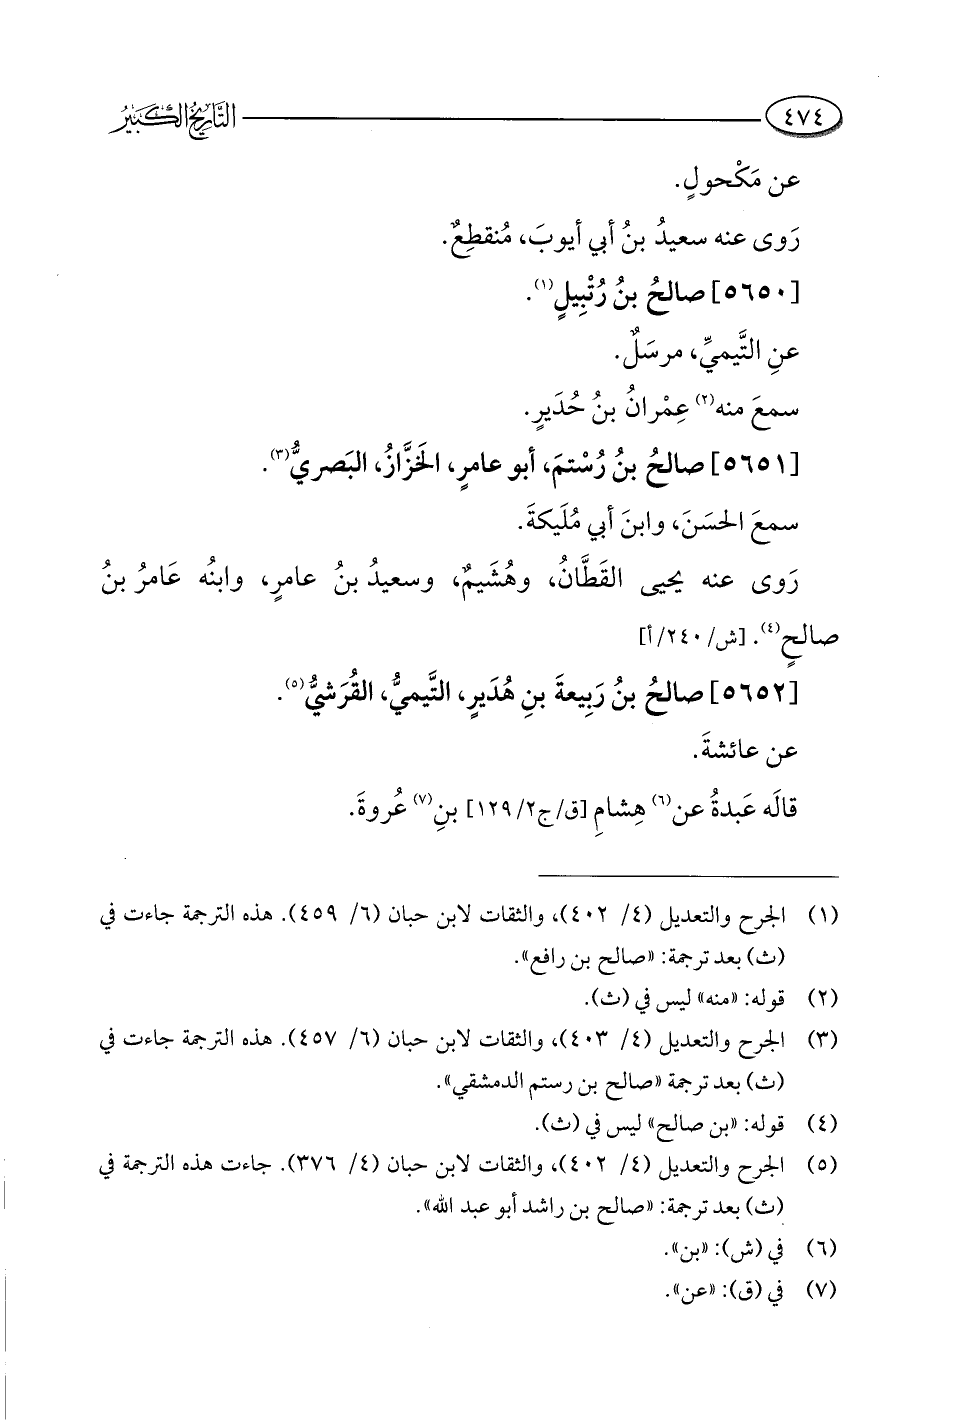 ٤٧٤ التاريخ الكبير
عن مَكْحولٍ.
رَوى عنه سعيدُ بنُ أبي أيوبَ، مُنقطِعٌ.
[٥٦٥٠] صالحُ بنُ رُتْبِيلٍ(١).
عنِ التَّيميِّ، مرسَلٌ.
سمعَ منه(٢) عِمْرانُ بنُ حُدَيرٍ.
[٥٦٥١] صالحُ بنُ رُسْتمَ، أبو عامرٍ، الخَزَّازُ، البَصريُّ(٣).
سمعَ الحسَنَ، وابنَ أبي مُلَيكةَ.
رَوى عنه يحيى القَطَّانُ، وهُشَيمٌ، وسعيدُ بنُ عامرٍ، وابنُه عَامرُ بنُ
صالحٍ(٤). [ش/٢٤٠/أ]
[٥٦٥٢] صالحُ بنُ رَبِيعةَ بنِ هُدَيرٍ، التَّيميُّ، القُرَشيُّ(٥).
عن عائشةَ.
قالَه عَبدةُ عن(٦) هِشامِ [ق/ج٢/١٢٩] بنِ(٧) عُروةَ.
(١) الجرح والتعديل (٤/ ٤٠٢)، والثقات لابن حبان (٦/ ٤٥٩). هذه الترجمة جاءت في
(ث) بعد ترجمة: «صالح بن رافع».
(٢) قوله: «منه» ليس في (ث).
(٣) الجرح والتعديل (٤/ ٤٠٣)، والثقات لابن حبان (٦/ ٤٥٧). هذه الترجمة جاءت في
(ث) بعد ترجمة «صالح بن رستم الدمشقي».
(٤) قوله: «بن صالح» ليس في (ث).
(٥) الجرح والتعديل (٤/ ٤٠٢)، والثقات لابن حبان (٤/ ٣٧٦). جاءت هذه الترجمة في
(ث) بعد ترجمة: «صالح بن راشد أبو عبد الله».
(٦) في (ش): «بن».
(٧) في (ق): «عن».